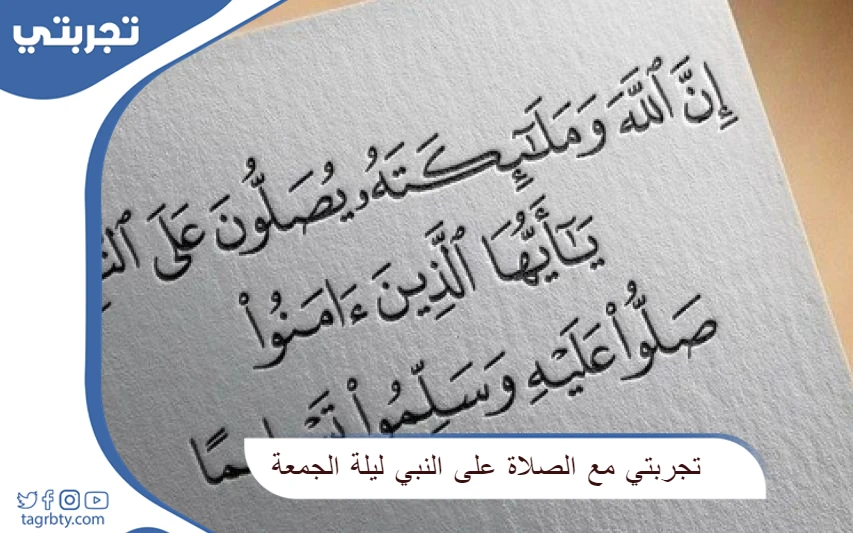 تجربتي
إِنَّ ٱللَّهَ وَمَلَٰٓئِكَتَهُۥ يُصَلُّونَ عَلَى
يَٰٓأَيُّهَا ٱلَّذِينَ ءَامَنُوا۟
صَلُّوا۟ عَلَيْهِ وَسَلِّمُوا۟
تجربتي مع الصلاة على النبي ليلة الجمعة
tagrbty.com